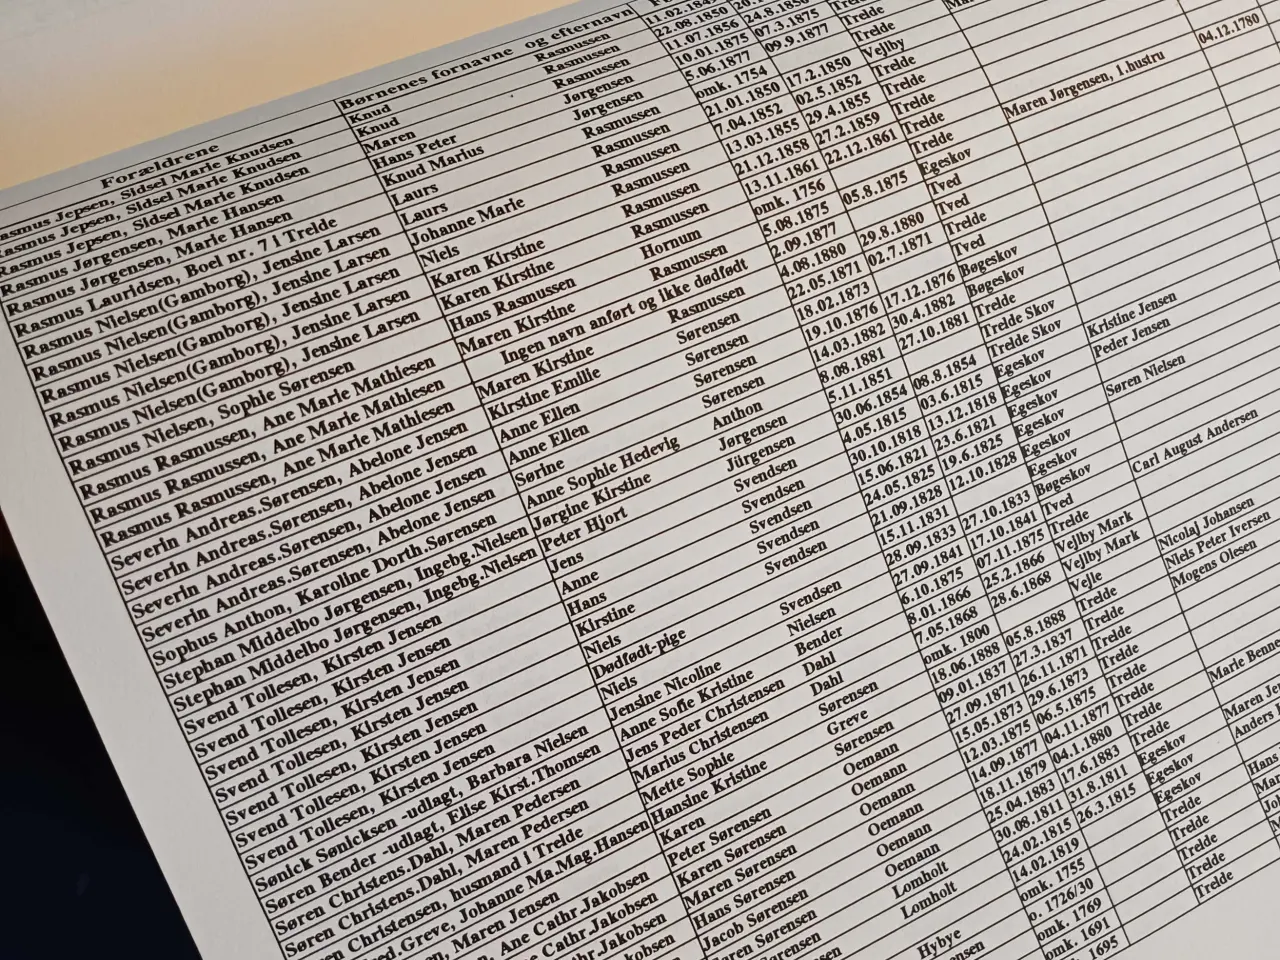 Forældrene
asmus Jepsen, Sidsel Marie Knudsen
asmus Jepsen, Sidsel Marie Knudsen
Rasmus Jepsen, Sidsel Marie Knudsen
Rasmus Jørgensen, Marie Hansen
Rasmus Jørgensen, Marie Hansen
Rasmus Lauridsen, Boel nr. 7 i Trelde
Rasmus Nielsen(Gamborg), Jensine Larsen
Rasmus Nielsen(Gamborg), Jensine Larsen
Rasmus Nielsen(Gamborg), Jensine Larsen
Rasmus Nielsen(Gamborg), Jensine Larsen
Rasmus Nielsen(Gamborg), Jensine Larsen
Rasmus Nielsen, Sophie Sørensen
Rasmus Rasmussen, Ane Marie Mathiesen
Rasmus Rasmussen, Ane Marie Mathiesen
Rasmus Rasmussen, Ane Marie Mathiesen
Severin Andreas.Sørensen, Abelone Jensen
Severin Andreas.Sørensen, Abelone Jensen
Severin Andreas.Sørensen, Abelone Jensen
Severin Andreas.Sørensen, Abelone Jensen
Sophus Anthon, Karoline Dorth.Sørensen
Stephan Middelbo Jørgensen, Ingebg.Nielsen
Stephan Middelbo Jørgensen, Ingebg.Nielsen
Svend Tollesen, Kirsten Jensen
Svend Tollesen, Kirsten Jensen
Svend Tollesen, Kirsten Jensen
Svend Tollesen, Kirsten Jensen
Svend Tollesen, Kirsten Jensen
Svend Tollesen, Kirsten Jensen
Sønick Sønicksen -udlagt, Barbara Nielsen
Søren Bender -udlagt, Ellise Kirst.Thomsen
Søren Christens.Dahl, Maren Pedersen
Søren Christens.Dahl, Maren Pedersen
Christensen, husmand i Trelde
ed.Greve, Johanne Ma.Mag.Hansen
n, Maren Jensen
, Ane Cathr.Jakobsen
e Cathr.Jakobsen
thr.Jakobsen
kobsen
Børnenes fornavne og efternavn
Knud Rasmussen
Knud Rasmussen
Maren Rasmussen
Hans Peter Jørgensen
Knud Marius Jørgensen
Laurs Rasmussen
Laurs Rasmussen
Johanne Marie Rasmussen
Niels Rasmussen
Karen Kirstine Rasmussen
Karen Kirstine Rasmussen
Hans Rasmussen Hornum
Maren Kirstine Rasmussen
Ingen navn anført og ikke dødfødt
Maren Kirstine Rasmussen
Kirstine Emilie Sørensen
Anne Ellen Sørensen
Anne Ellen Sørensen
Sørine Sørensen
Anne Sophie Hedevig Anthon
Jørgine Kirstine Jørgensen
Peter Hjort Jürgensen
Jens Svendsen
Anne Svendsen
Hans Svendsen
Kirstine Svendsen
Niels
Dødfødt-pige
Niels Svendsen
Jensine Nicoline Nielsen
Anne Sofie Kristine Bender
Jens Peter Christensen Dahl
Marius Christensen Dahl
Mette Sophie Sørensen
Hansine Kristine Greve
Karen Sørensen
Peter Sørensen Oemann
Karen Sørensen Oemann
Maren Sørensen Oemann
Hans Sørensen Oemann
Jacob Sørensen Lomholt
aren Sørensen Lomholt
Hybye
22.08.1850
11.07.1856
10.01.1875
5.06.1877
omk. 1754
21.01.1850
7.04.1852
13.03.1855
21.12.1858
13.11.1861
omk. 1756
5.08.1875
2.09.1877
4.08.1880
22.05.1871
18.02.1873
19.10.1876
14.03.1882
8.08.1881
5.11.1851
30.06.1854
4.05.1815
30.10.1818
15.06.1821
24.05.1825
21.09.1828
15.11.1831
28.09.1833
27.09.1841
6.10.1875
8.01.1866
7.05.1868
omk. 1800
18.06.1888
09.01.1837
27.09.1871
15.05.1873
12.03.1875
14.09.1877
18.11.1879
25.04.1883
30.08.1811
24.02.1815
14.02.1819
omk. 1755
o. 1726/30
omk. 1769
omk. 1691
1695
24.8.1850
07.3.1875
09.9.1877
17.2.1850
02.5.1852
29.4.1855
27.2.1859
22.12.1861
05.8.1875
29.8.1880
02.7.1871
17.12.1876
30.4.1882
27.10.1881
08.8.1854
03.6.1815
13.12.1818
23.6.1821
19.6.1825
12.10.1828
27.10.1833
17.10.1841
07.11.1875
25.2.1866
28.6.1868
05.8.1888
27.3.1837
26.11.1871
29.6.1873
06.5.1875
04.11.1877
04.1.1880
17.6.1883
31.8.1811
26.3.1815
Trelde
Trelde
Vejlby
Trelde
Trelde
Trelde
Trelde
Trelde
Egeskov
Tved
Tved
Trelde
Tved
Bøgeskov
Bøgeskov
Trelde
Trelde Skov
Trelde Skov
Egeskov
Egeskov
Egeskov
Egeskov
Egeskov
Egeskov
Bøgeskov
Tved
Trelde
Vejlby Mark
Vejlby Mark
Vejle
Trelde
Trelde
Trelde
Trelde
Trelde
Trelde
Trelde
Trelde
Egeskov
Egeskov
Egeskov
Trelde
Trelde
Trelde
Trelde
Maren Jørgensen, 1.hustru
Kristine Jensen
Peder Jensen
Søren Nielsen
Carl August Andersen
Nicolaj Johansen
Niels Peter Iversen
Mogens Olesen
Marie Benne
Maren Je
Anders
Hans
04.12.1780